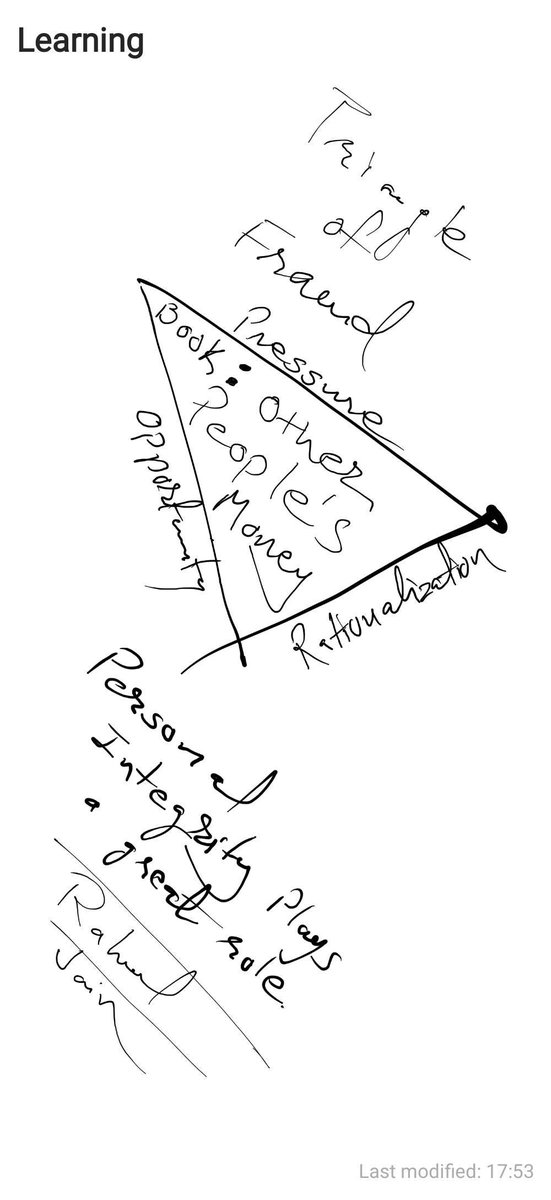 Learning
Triangle
of
Fraud
Pressure
Book:
Other
People's
Money
Opportunity
Rationalization
Personal
Integrity Plays
a great role.
Rahul
Jain
Last modified: 17:53